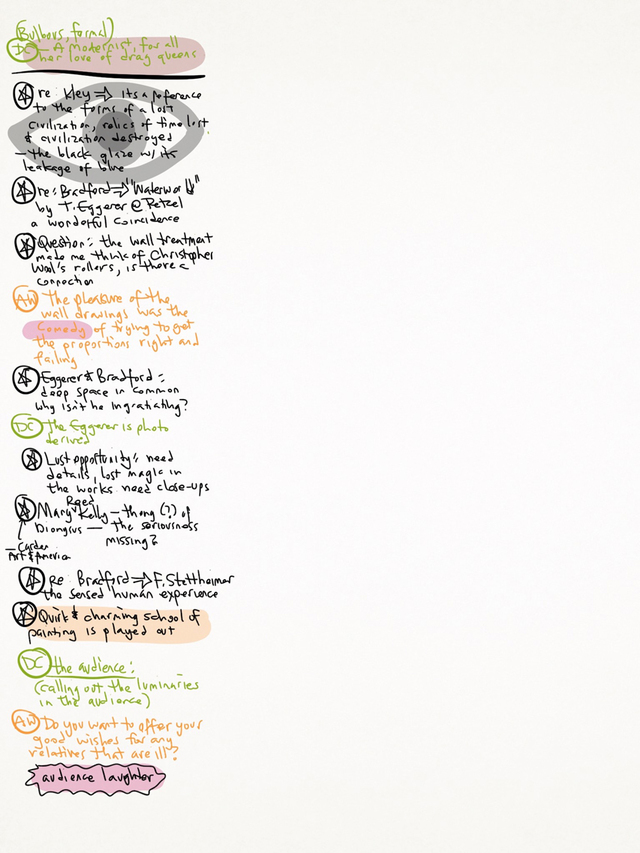 (Bulbous, formal)
DC — A modernist, for all
her love of drag queens
re Kley ⇒ its a reference
to the forms of a lost
civilization, relics of time lost
& civilization destroyed
— the black glaze w/ its
leakage of blue
re: Bradford ⇒ "Waterworld"
by T. Eggerer @ Petzel
a wonderful coincidence
Question: the wall treatment
made me think of Christopher
Wool's rollers, is there a
connection
AW the pleasure of the
wall drawings was the
Comedy of trying to get
the proportions right and
failing
Eggerer & Bradford:
deep space in common
why isn't he ingratiating?
DC the Eggerer is photo
derived
Lost opportunity: need
details, lost magic in
the works need close-ups
Reed
Mary Kelly — thong (?) of
Dionysus — the seriousness
missing?
— Carder
Art & America
re Bradford ⇒ F. Stettheimer
the sensed human experience
Quirk & charming school of
painting is played out
DC the audience:
(calling out the luminaries
in the audience)
AW Do you want to offer your
good wishes for any
relatives that are ill?
audience laughter